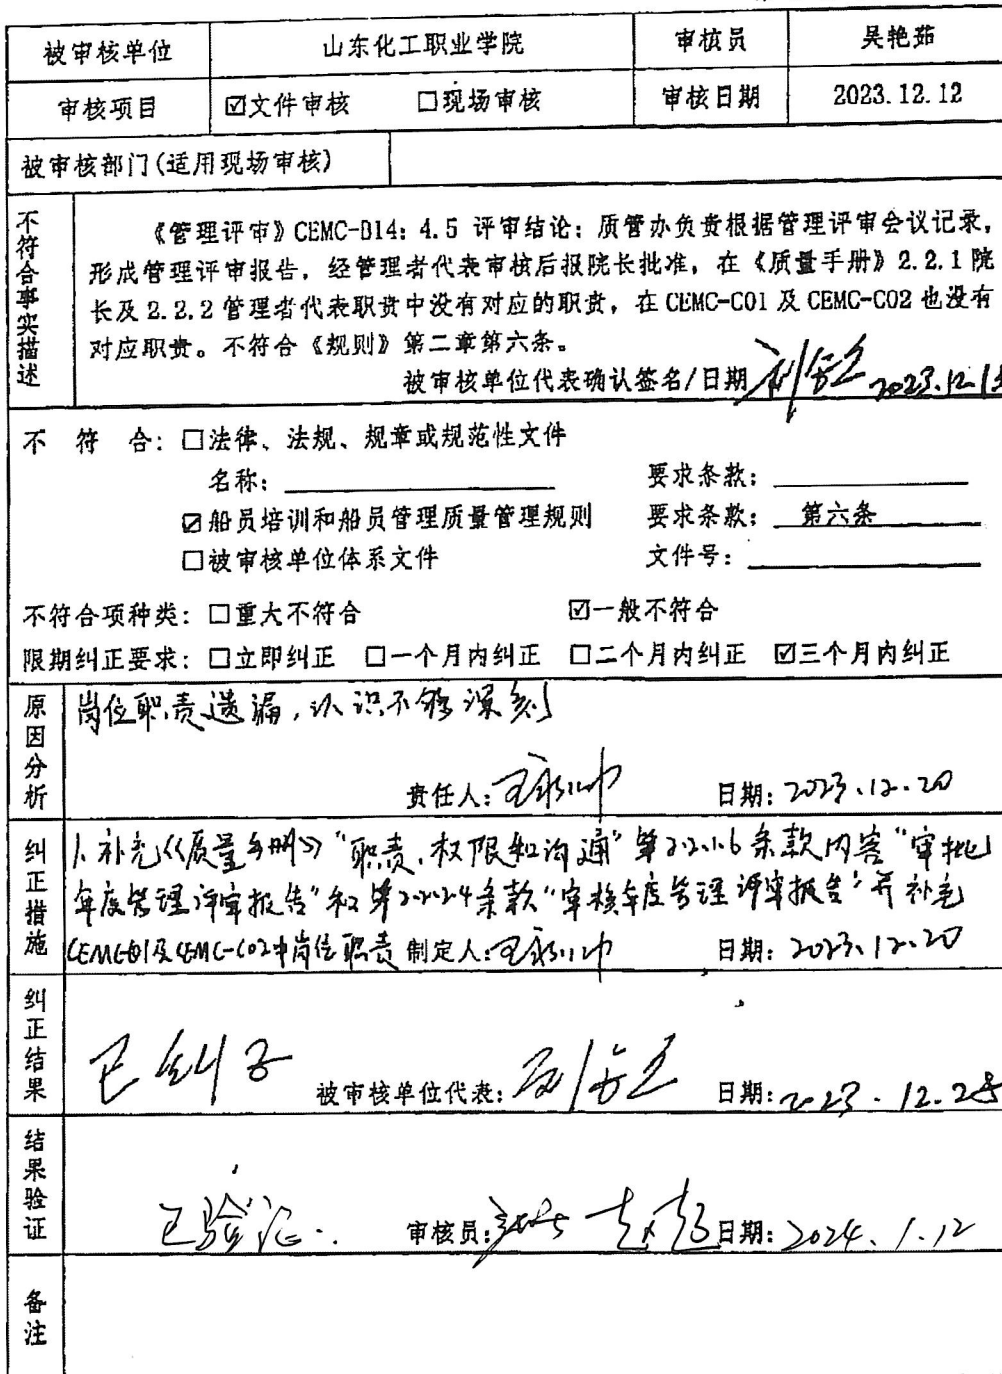 被审核单位 山东化工职业学院 审核员 吴艳茹
审核项目 ☑文件审核 □现场审核 审核日期 2023.12.12
被审核部门(适用现场审核)
不符合事实描述
《管理评审》CEMC-D14：4.5 评审结论：质管办负责根据管理评审会议记录，
形成管理评审报告，经管理者代表审核后报院长批准，在《质量手册》2.2.1院
长及2.2.2管理者代表职责中没有对应的职责，在CEMC-C01及CEMC-C02也没有
对应职责。不符合《规则》第二章第六条。
被审核单位代表确认签名/日期 2023.12.
不 符 合：□法律、法规、规章或规范性文件
名称： 要求条款：
☑船员培训和船员管理质量管理规则 要求条款： 第六条
□被审核单位体系文件 文件号：
不符合项种类：□重大不符合 ☑一般不符合
限期纠正要求：□立即纠正 □一个月内纠正 □二个月内纠正 ☑三个月内纠正
原因分析
岗位职责遗漏，认识不够深刻
责任人： 日期：2023.12.20
纠正措施
1.补充《质量手册》"职责、权限和沟通"第2.2.1.6条款内容"审批
年度管理评审报告"和第2.2.2.4条款"审核年度管理评审报告"并补充
CEMC-C01及CEMC-C02中岗位职责 制定人： 日期：2023.12.20
纠正结果
已纠正 被审核单位代表： 日期：2023.12.28
结果验证
已验证. 审核员： 日期：2024.1.12
备注